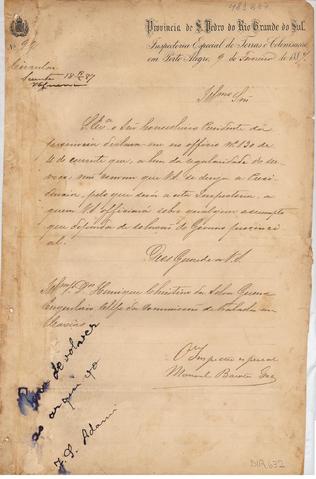 Provincia de S. Pedro do Rio Grande do Sul.
Nº
Inspectoria Especial de Terras e Colonisação
em Porto Alegre, 9 de Fevereiro de 1887
Circular
Illmo Snr
S. Exª o Snr Conselheiro Presidente da
Provincia declara em seo officio nº 130 de
4 do corrente que, a bem da regularidade do ser-
viço, não convem que VS. se dirija a Presi-
dencia, pelo que
a esta Inspectoria, a
quem VS officiará sobre qualquer assumpto
que dependa de solução do Governo provin-
cial.
Deos Guarde a VS.
Illmo Sr Dr Henrique Christino da Silva
Engenheiro Chefe da Commissão de
Caxias
O Inspector especial
Manoel
Para devolver
ao arquivo
J. S. Adami
DIR 632